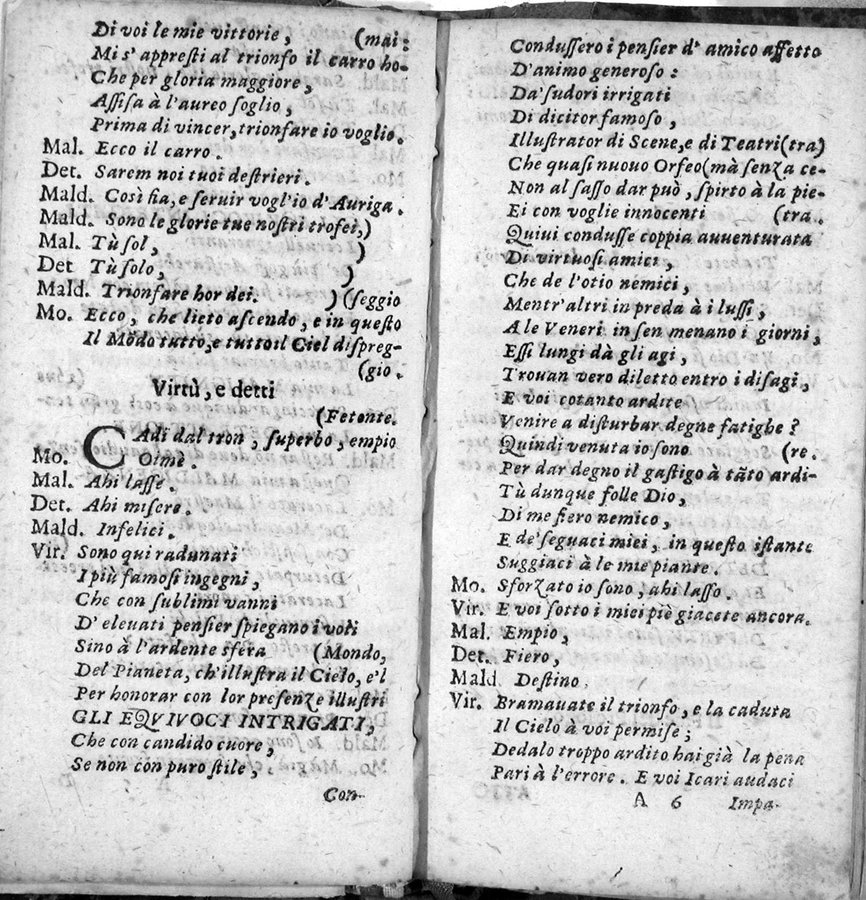 Di voi le mie vittorie, (mai:
Mi s'appresti al trionfo il carro ho-
Che per gloria maggiore,
Assisa à l'aureo soglio,
Prima di vincer, trionfare io voglio.
Mal. Ecco il carro.
Det. Sarem noi tuoi destrieri.
Mald. Così fia, e seruir vogl'io d'Auriga.
Mald. Sono le glorie tue nostri trofei,)
Mal. Tù sol, )
Det Tù solo, )
Mald. Trionfare hor dei. ) (seggio
Mo. Ecco, che lieto ascendo, e in questo
Il Modo tutto, e tutto il Ciel dispreg-
(gio.
Virtù, e detti
(Fetonte.
CAdi dal tron, superbo, empio
Mo. Oimè.
Mal. Ahi lasse.
Det. Ahi misere.
Mald. Infelici.
Vir. Sono qui radunati
I più famosi ingegni,
Che con sublimi vanni
D'eleuati pensier spiegano i voli
Sino à l'ardente sfera (Mondo,
Del Pianeta, ch'illustra il Cielo, e'l
Per honorar con lor presenze illustri
GLI EQVIVOCI INTRIGATI,
Che con candido cuore,
Se non con puro stile,
Con-
Condussero i pensier d'amico affetto
D'animo generoso:
Da'sudori irrigati
Di dicitor famoso,
Illustrator di Scene, e di Teatri (tra)
Che quasi nuouo Orfeo (mà senza ce-
Non al sasso dar può, spirto à la pie-
Ei con voglie innocenti (tra.
Quiui condusse coppia auuenturata
Di virtuosi amici,
Che de l'otio nemici,
Mentr'altri in preda à i lussi,
A le Veneri in sen menano i giorni,
Essi lungi dà gli agi,
Trouan vero diletto entro i disagi,
E voi cotanto ardite
Venire a disturbar degne fatighe?
Quindi venuta io sono (re.
Per dar degno il gastigo à tãto ardi-
Tù dunque folle Dio,
Di me fiero nemico,
E de'seguaci miei, in questo istante
Suggiaci à le mie piante.
Mo. Sforzato io sono, ahi lasso.
Vir. E voi sotto i miei piè giacete ancora.
Mal. Empio,
Det. Fiero,
Mald Destino
Vir. Bramauate il trionfo, e la caduta
Il Cielo à voi permise;
Dedalo troppo ardito hai già la pena
Pari à l'errore. E voi Icari audaci
A 6 Impa-